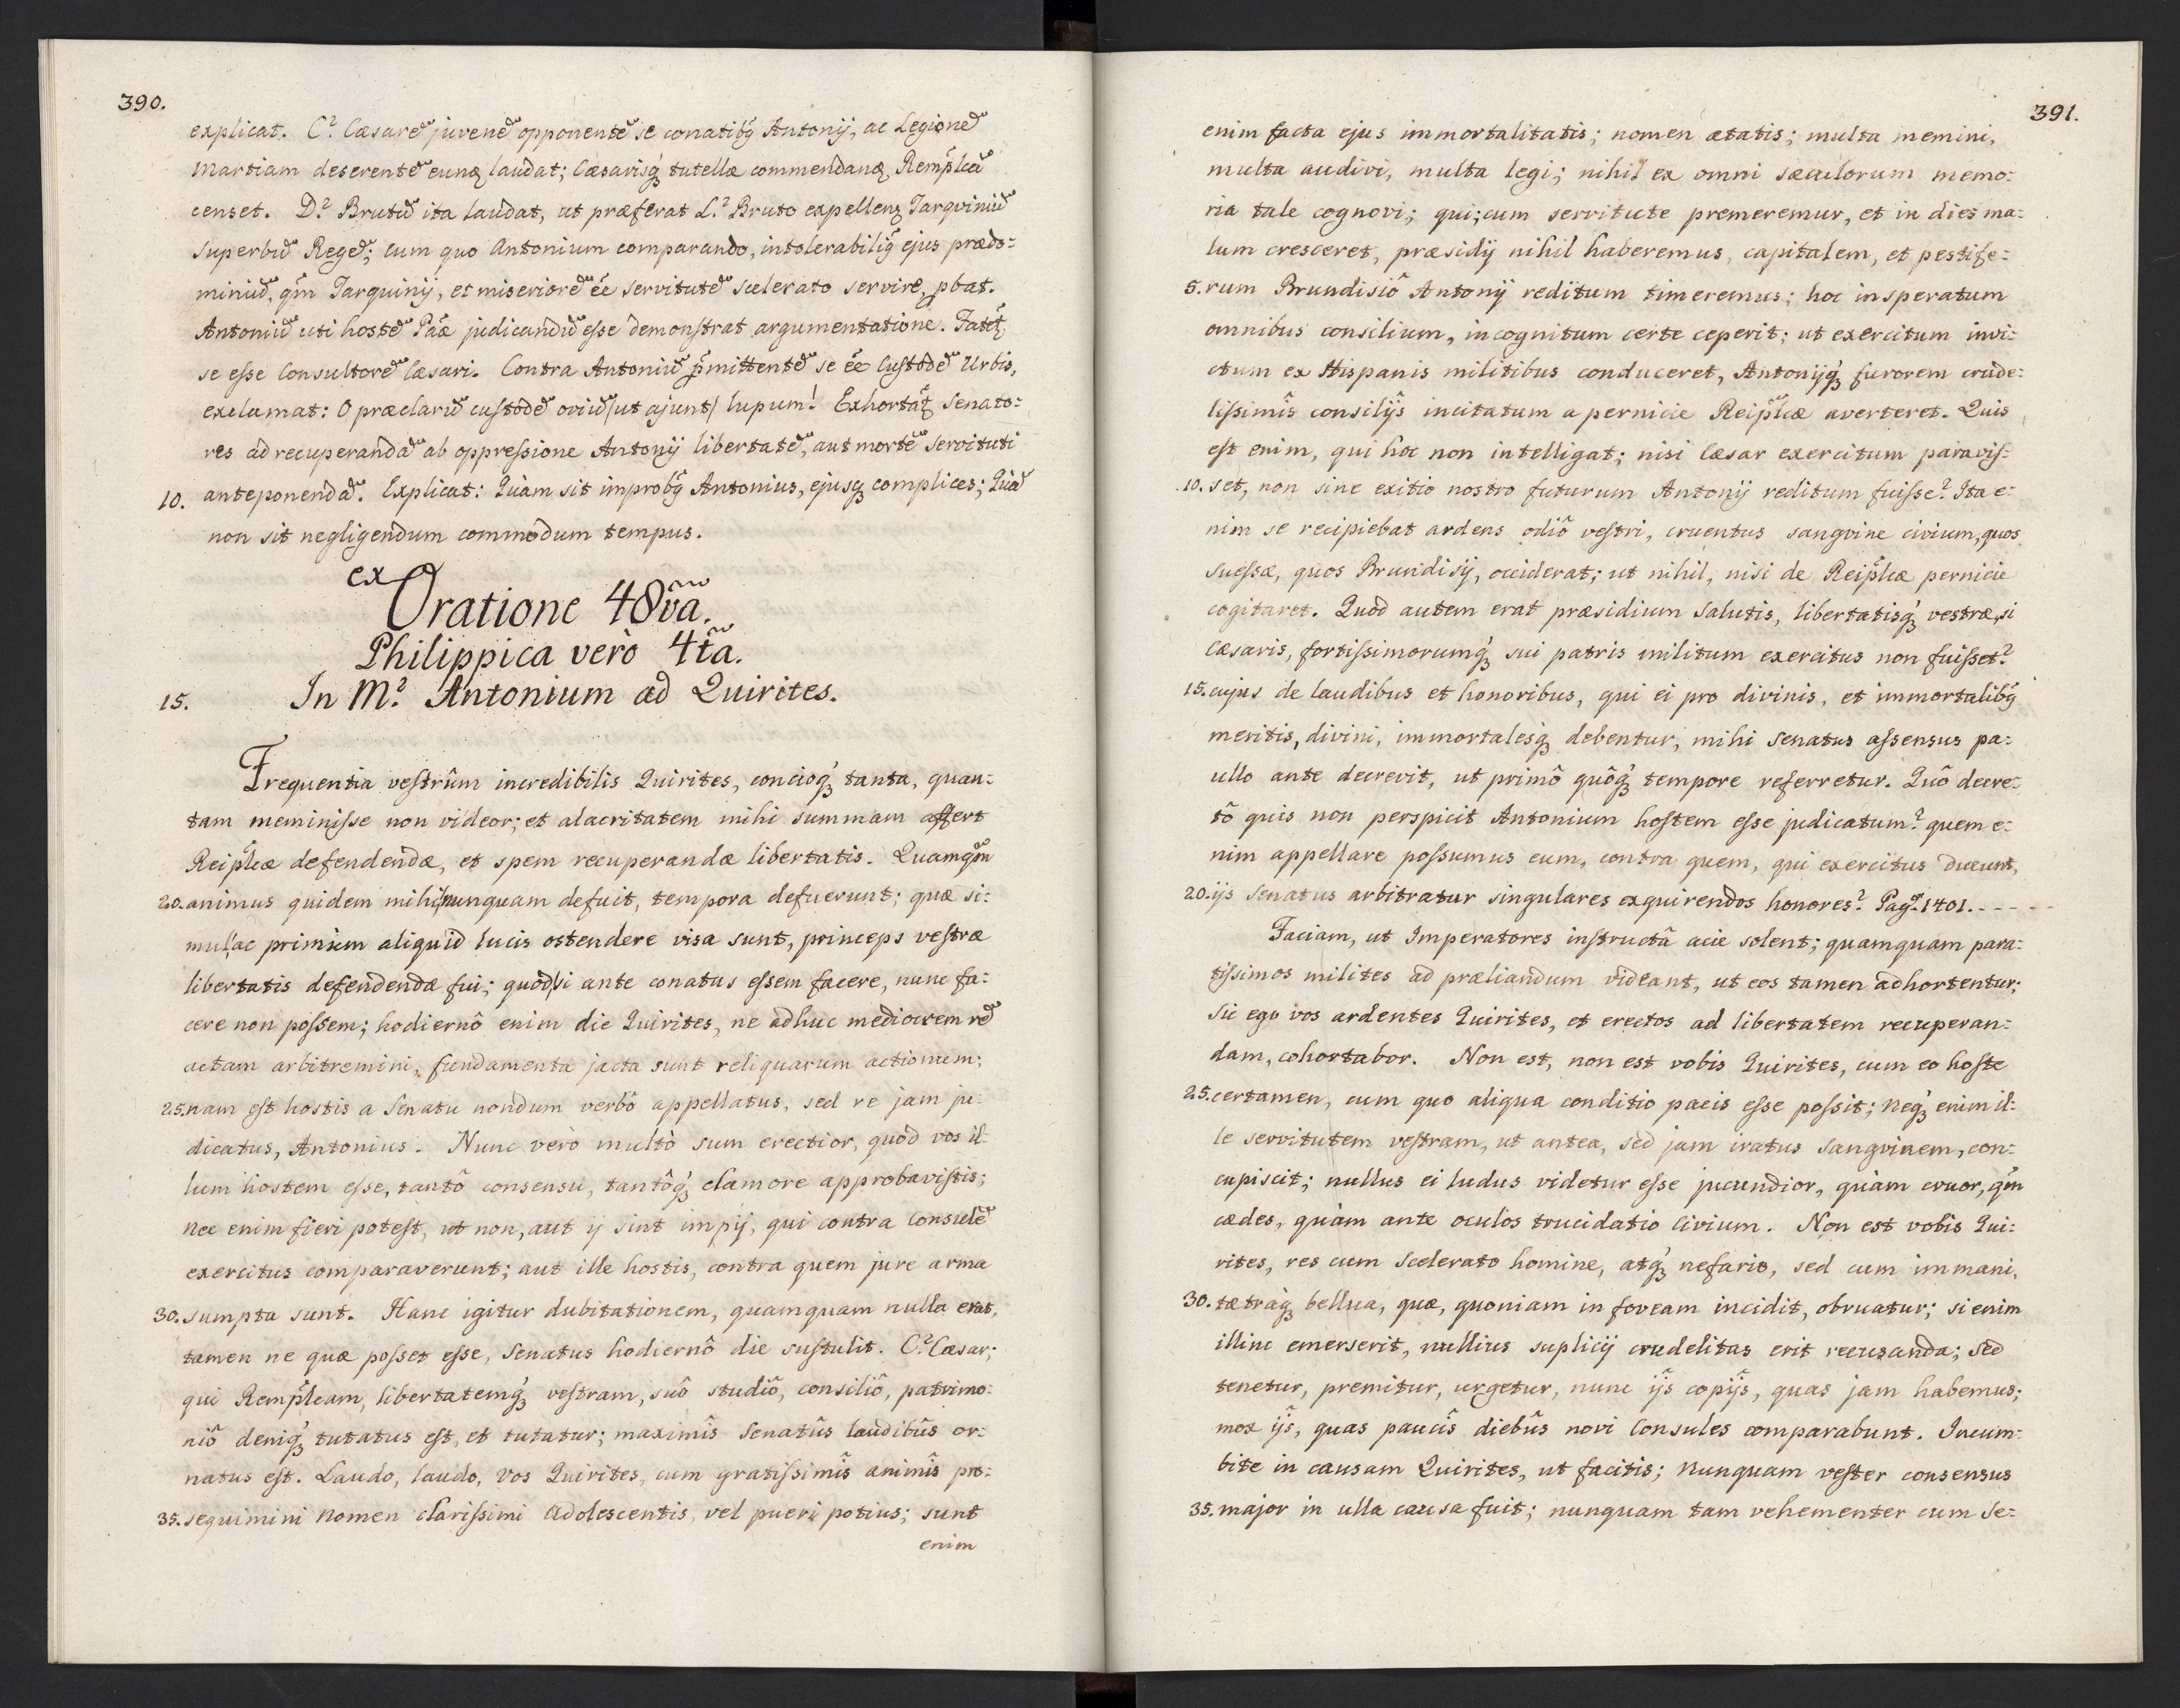 390.
explicat. C? Cæsarẽ juvenẽ opponentẽ se conatibꝗ Antonij, ac Legionẽ
Martiam deserentẽ eunꝗ laudat; Cæsarisq́ꝫ tutellæ commendanꝗ Rempl̃cã
censet. D? Brutũ ita laudat, ut præferat L? Bruto expellenꝗ Tarqviniũ
superbũ Regẽ; cum quo Antonium comparando, intolerabiliꝗ ejus prædo:
miniũ, qm̃ Tarquinij, et miseriorẽ ée servitutẽ scelerato servire, ꝓbat.
Antoniũ uti hostẽ Pãæ judicandũ esse demonstrat argumentatione. Fatet̃
se esse Consultorẽ Cæsari. Contra Antoniũ p̃mittentẽ se ée Custodẽ Urbis,
exclamat: O præclarũ custodẽ oviũ/ut ajunt/ lupum! Exhortat̃ Senato:
res ad recuperandã ab oppressione Antonij libertatẽ, aut mortẽ servituti
10. anteponendã. Explicat: Quàm sit improbꝗ Antonius, ejusꝗ complices; Quã
non sit negligendum commodum tempus.
ex
Oratione 48vã.
Philippica verò 4tã.
15. In M? Antonium ad Quirites.
Frequentia vestrûm incredibilis Quirites, concioq́ꝫ tanta, quan:
tam meminisse non videor; et alacritatem mihi summam affert
Reipl̃cæ defendendæ, et spem recuperandæ libertatis. Quamqm̃
20. animus quidem mihi nunquam defuit, tempora defuerunt; quæ si:
mul,ac primùm aliquid lucis ostendere visa sunt, princeps vestræ
libertatis defendendæ fui; quod,si ante conatus essem facere, nunc fa:
cere non possem; hodiernô enim die Quirites, ne adhuc mediocrem rẽ
actam arbitremini, fundamenta jacta sunt reliquarum actionum;
25. nam est hostis a Senatu nondum verbô appellatus, sed re jam ju:
dicatus, Antonius. Nunc verò multò sum erectior, quòd vos il:
lum hostem esse, tantô consensu, tantôq́ꝫ clamore approbavistis;
nec enim fieri potest, ut non, aut ij sint impij, qui contra Consulẽ
exercitus comparaverunt; aut ille hostis, contra quem jure arma
30. sumpta sunt. Hanc igitur dubitationem, quamquam nulla erat,
tamen ne quæ posset esse, Senatus hodiernô die sustulit. C? Cæsar;
qui Rempl̃cam, libertatemq́ꝫ vestram, suô studiô, consiliô, patrimo:
niô deniq́ꝫ tutatus est, et tutatur; maximîs Senatûs laudibûs or:
natus est. Laudo, laudo, vos Quirites, cum gratissimîs animîs pro:
35. sequimini nomen clarissimi Adolescentis, vel pueri potius; sunt
enim
391.
enim facta ejus immortalitatis; nomen ætatis; multa memini,
multa audivi, multa legi; nihil ex omni sæculorum memo:
ria tale cognovi; qui;cum servitute premeremur, et in dies ma:
lum cresceret, præsidij nihil haberemus, capitalem, et pestife:
5. rum Brundisiô Antonij reditum timeremus; hoc insperatum
omnibus consilium, incognitum certe ceperit; ut exercitum invi:
ctum ex Hispanis militibus conduceret, Antonijq́ꝫ furorem crude:
lissimîs consilijs incitatum a pernicie Reipl̃cæ averteret. Quis
est enim, qui hoc non intelligat; nisi Cæsar exercitum paravis:
10. set, non sine exitio nostro futurum Antonij reditum fuisse? Ita e:
nim se recipiebat ardens odiô vestri, cruentus sangvine civium, quos
suessæ, quos Brundisij, occiderat; ut nihil, nisi de Reipl̃cæ pernicie
cogitaret. Quod autem erat præsidium Salutis, libertatisq́ꝫ vestræ, si
Cæsaris, fortissimorumq́ꝫ sui patris militum exercitus non fuisset?
15. cujus de laudibus et honoribus, qui ei pro divinis, et immortalibꝗ
meritis, divini, immortalesq́ꝫ debentur, mihi Senatus assensus pa:
ullo ante decrevit, ut primô quôq́ꝫ tempore referretur. Quô decre:
tô quis non perspicit Antonium hostem esse judicatum? quem e:
nim appellare possumus eum, contra quem, qui exercitus ducunt,
20. ijs Senatus arbitratur singulares exquirendos honores? Pag. 1401.-----
Faciam, ut Imperatores instructâ acie solent; quamquam para:
tissimos milites ad præliandum videant, ut eos tamen adhortentur;
Sic ego vos ardentes Quirites, et erectos ad libertatem recuperan:
dam, cohortabor. Non est, non est vobis Quirites, cum eo hoste
25. certamen, cum quo aliqua conditio pacis esse possit; Neq́ꝫ enim il:
le servitutem vestram, ut antea, sed jam iratus Sangvinem, con:
cupiscit; nullus ei ludus videtur esse jucundior, quàm cruor, qm̃
cædes, quàm ante oculos trucidatio Civium. Non est vobis Qui:
rites, res cum Scelerato homine, atq́ꝫ nefario, sed cum immani,
30. tætràq́ꝫ bellua, quæ, quoniam in foveam incidit, obruatur; si enim
illinc emerserit, nullius suplicij crudelitas erit recusanda; sed
tenetur, premitur, urgetur, nunc ijs copijs, quas jam habemus;
mox ijs, quas paucîs diebûs novi Consules comparabunt. Incum:
bite in causam Quirites, ut facitis; Nunquam vester consensus
35. major in ulla causa fuit; nunquam tam vehementer cum Se: